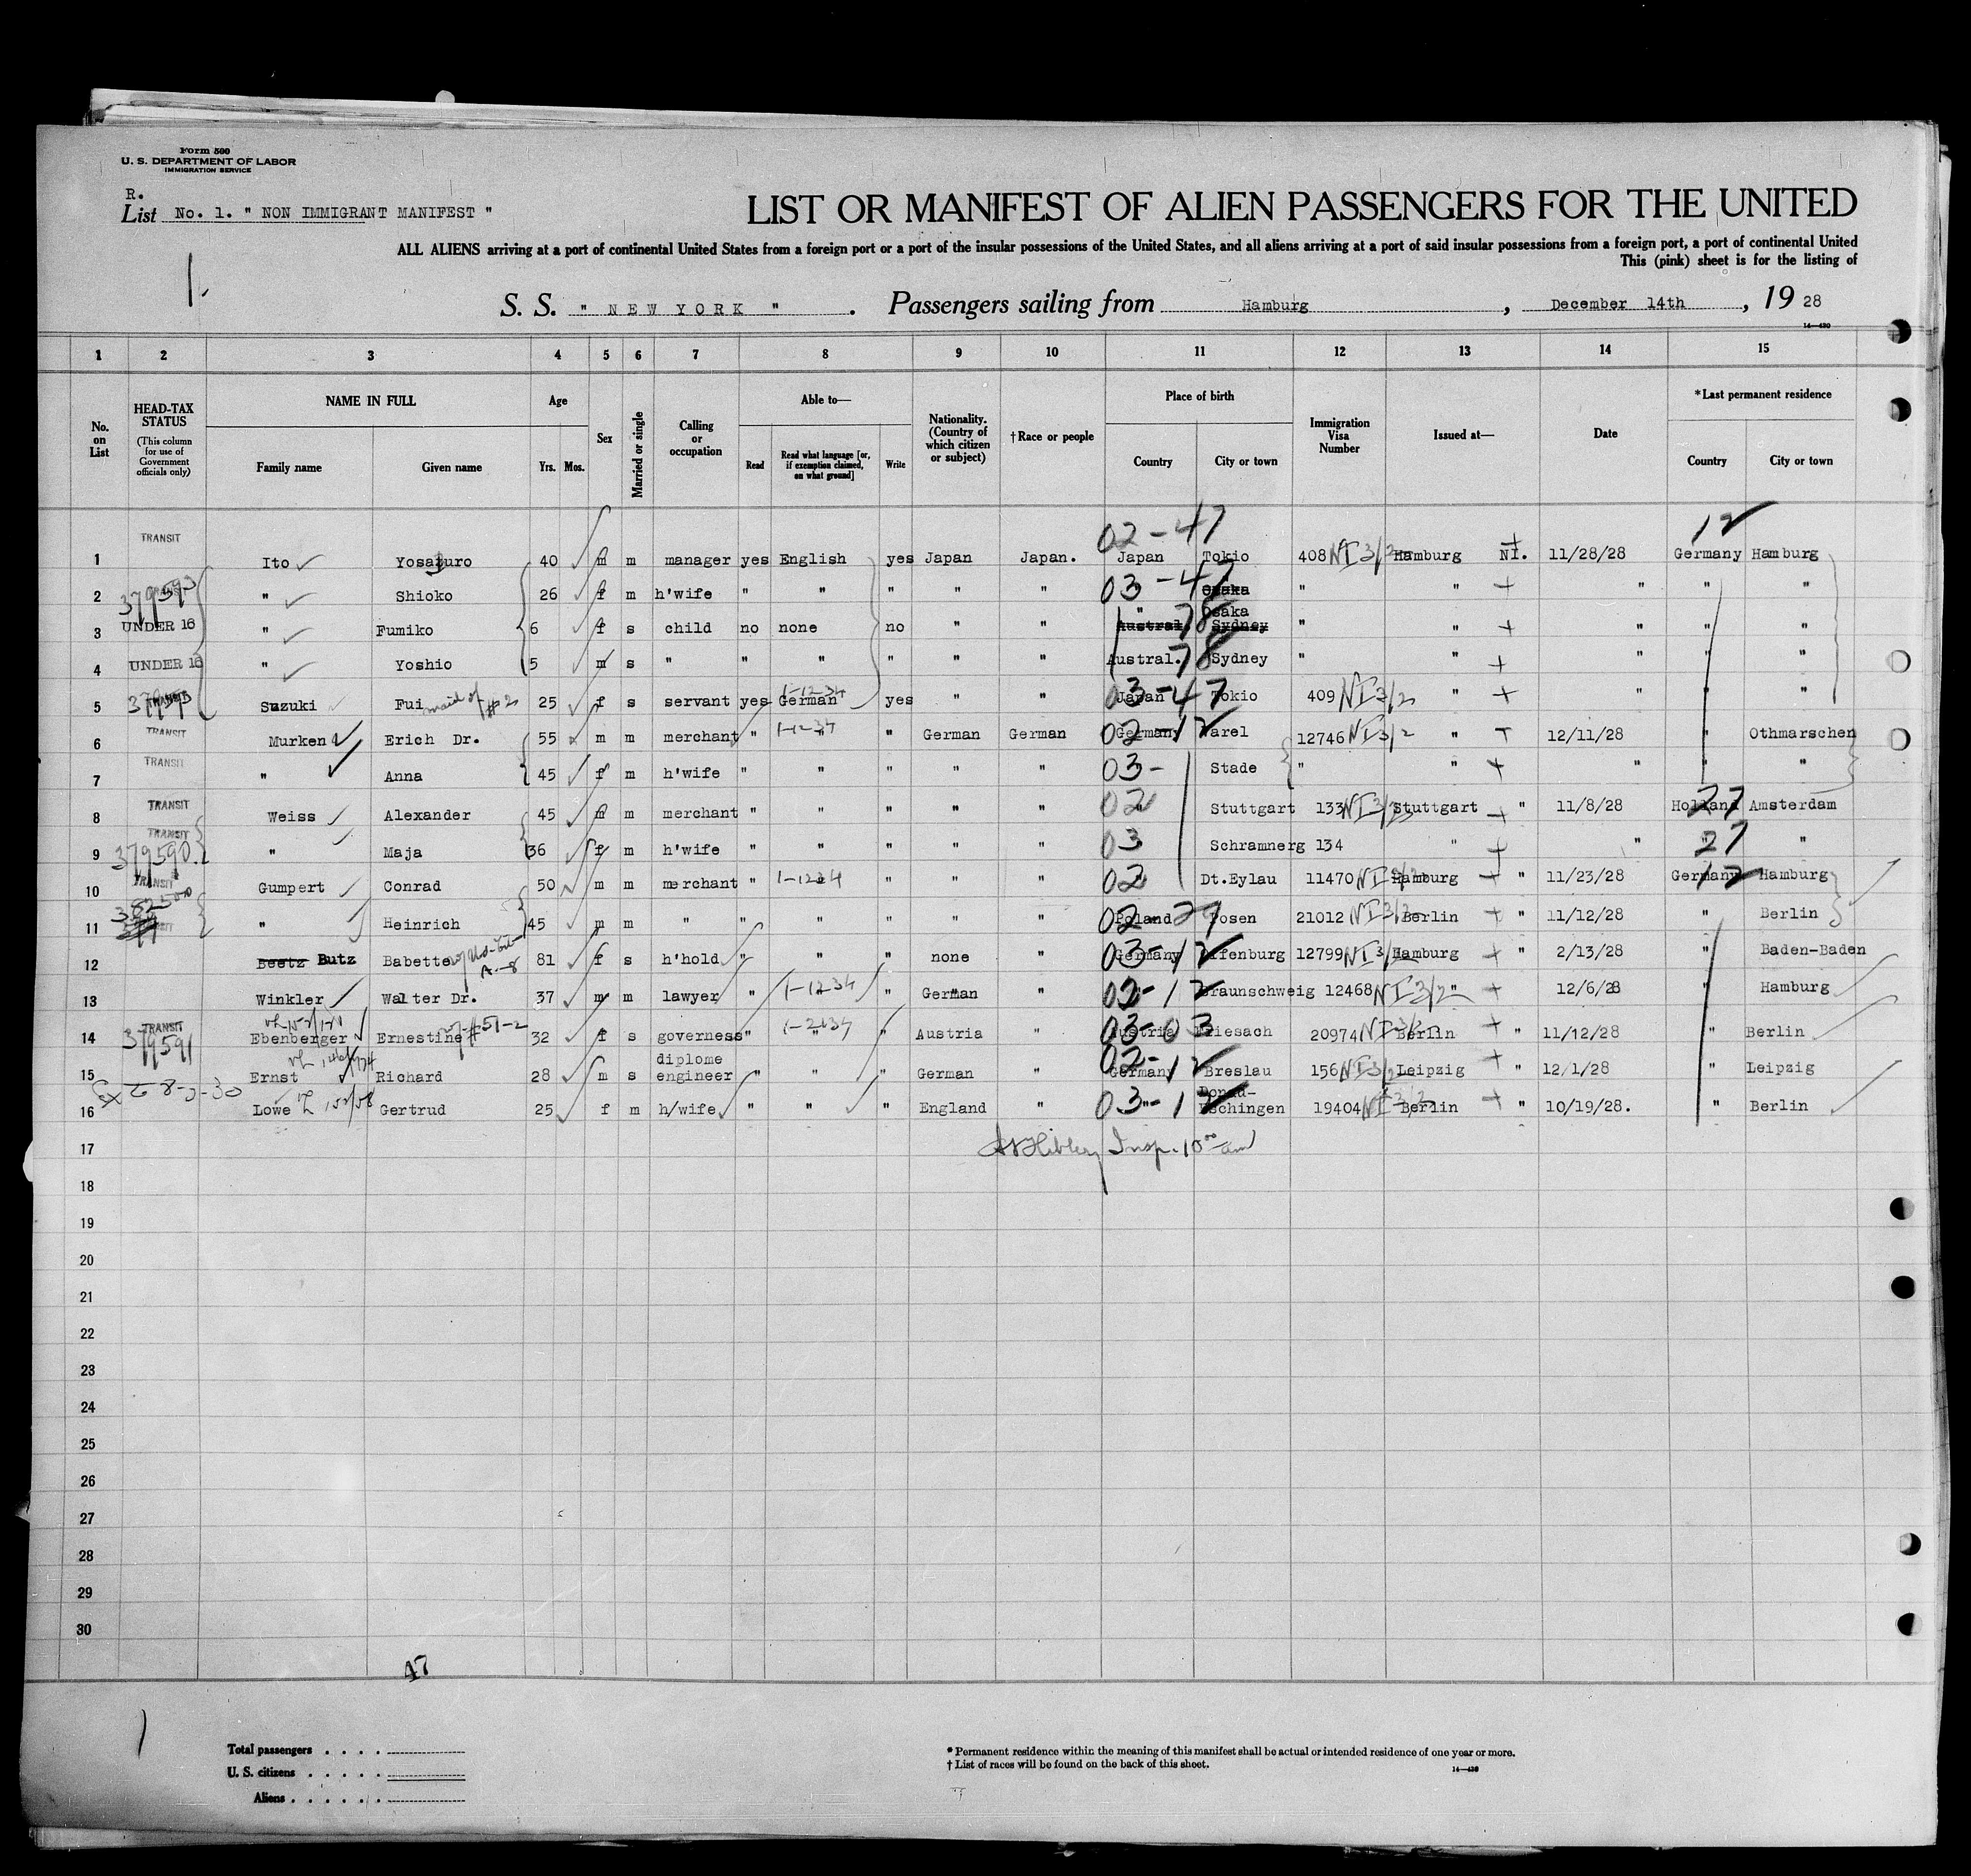 Form 500
U. S. DEPARTMENT OF LABOR
IMMIGRATION SERVICE
R.
List No. 1. " NON IMMIGRANT MANIFEST "
LIST OR MANIFEST OF ALIEN PASSENGERS FOR THE UNITED
ALL ALIENS arriving at a port of continental United States from a foreign port or a port of the insular possessions of the United States, and all aliens arriving at a port of said insular possessions from a foreign port, a port of continental United
This (pink) sheet is for the listing of
1.
S. S. " NEW YORK " . Passengers sailing from Hamburg , December 14th , 19 28
1 2 3 4 5 6 7 8 9 10 11 12 13 14 15
No. on List
HEAD-TAX STATUS (This column for use of Government officials only)
NAME IN FULL Family name Given name
Age Yrs. Mos.
Sex
Married or single
Calling or occupation
Able to— Read Read what language [or, if exemption claimed, on what ground] Write
Nationality. (Country of which citizen or subject)
† Race or people
Place of birth Country City or town
Immigration Visa Number
Issued at—
Date
* Last permanent residence Country City or town
02-47 12
1 TRANSIT Ito Yosaburo 40 m m manager yes English yes Japan Japan. Japan Tokio 408 NI 3/2 Hamburg NI. 11/28/28 Germany Hamburg
2 379593 " Shioko 26 f m h'wife " " " " " 03-47 Osaka " " " " "
Osaka
3 UNDER 16 " Fumiko 6 f s child no none no " " Austral. 78 Sydney " " " " "
4 UNDER 16 " Yoshio 5 m s " " " " " " Austral. 78 Sydney " " " " "
5 TRANSIT Suzuki Fui maid of #2 25 f s servant yes 1-1234 German yes " " 03-47 Japan Tokio 409 NI 3/2 " " " "
6 TRANSIT Murken Erich Dr. 55 m m merchant " 1-1234 " " German German 02-12 Germany Varel 12746 NI 3/2 " 12/11/28 " Othmarschen
7 TRANSIT " Anna 45 f m h'wife " " " " " 03- Stade " " " " "
8 TRANSIT Weiss Alexander 45 m m merchant " " " " " 02 Stuttgart 133 NI 3/2 Stuttgart " 11/8/28 Holland 27 Amsterdam
9 TRANSIT 379590. " Maja 36 f m h'wife " " " " " 03 Schramnerg 134 " " 27 "
10 TRANSIT Gumpert Conrad 50 m m merchant " 1-1234 " " " 02 Dt.Eylau 11470 NI Hamburg " 11/23/28 Germany 12 Hamburg
11 " Heinrich 45 m m " " " " " " 02-29 Poland Posen 21012 NI 3/2 Berlin " 11/12/28 " Berlin
12 Beetz Butz Babette 81 f s h'hold " " " none " 03-12 Germany Offenburg 12799 NI 3/2 Hamburg " 2/13/28 " Baden-Baden
13 Winkler Walter Dr. 37 m m lawyer " 1-1234 " German " 02-12 Braunschweig 12468 NI 3/2 " 12/6/28 " Hamburg
14 TRANSIT 379591 Ebenberger Ernestine 32 f s governess " 1-2134 " " Austria " 03-03 Austria Friesach 20974 NI 3/2 Berlin " 11/12/28 " Berlin
diplome
15 Ernst Richard 28 m s engineer " " " German " 02-12 Germany Breslau 156 NI 3/2 Leipzig " 12/1/28 " Leipzig
Donau-
16 Lowe Gertrud 25 f m h/wife " " " England " 03-12 " Eschingen 19404 NI 3/2 Berlin " 10/19/28. " Berlin
17 Insp. 10 00 am
18
19
20
21
22
23
24
25
26
27
28
29
30
47
Total passengers . . . .
U. S. citizens . . . . .
Aliens . . . . . .
* Permanent residence within the meaning of this manifest shall be actual or intended residence of one year or more.
† List of races will be found on the back of this sheet.